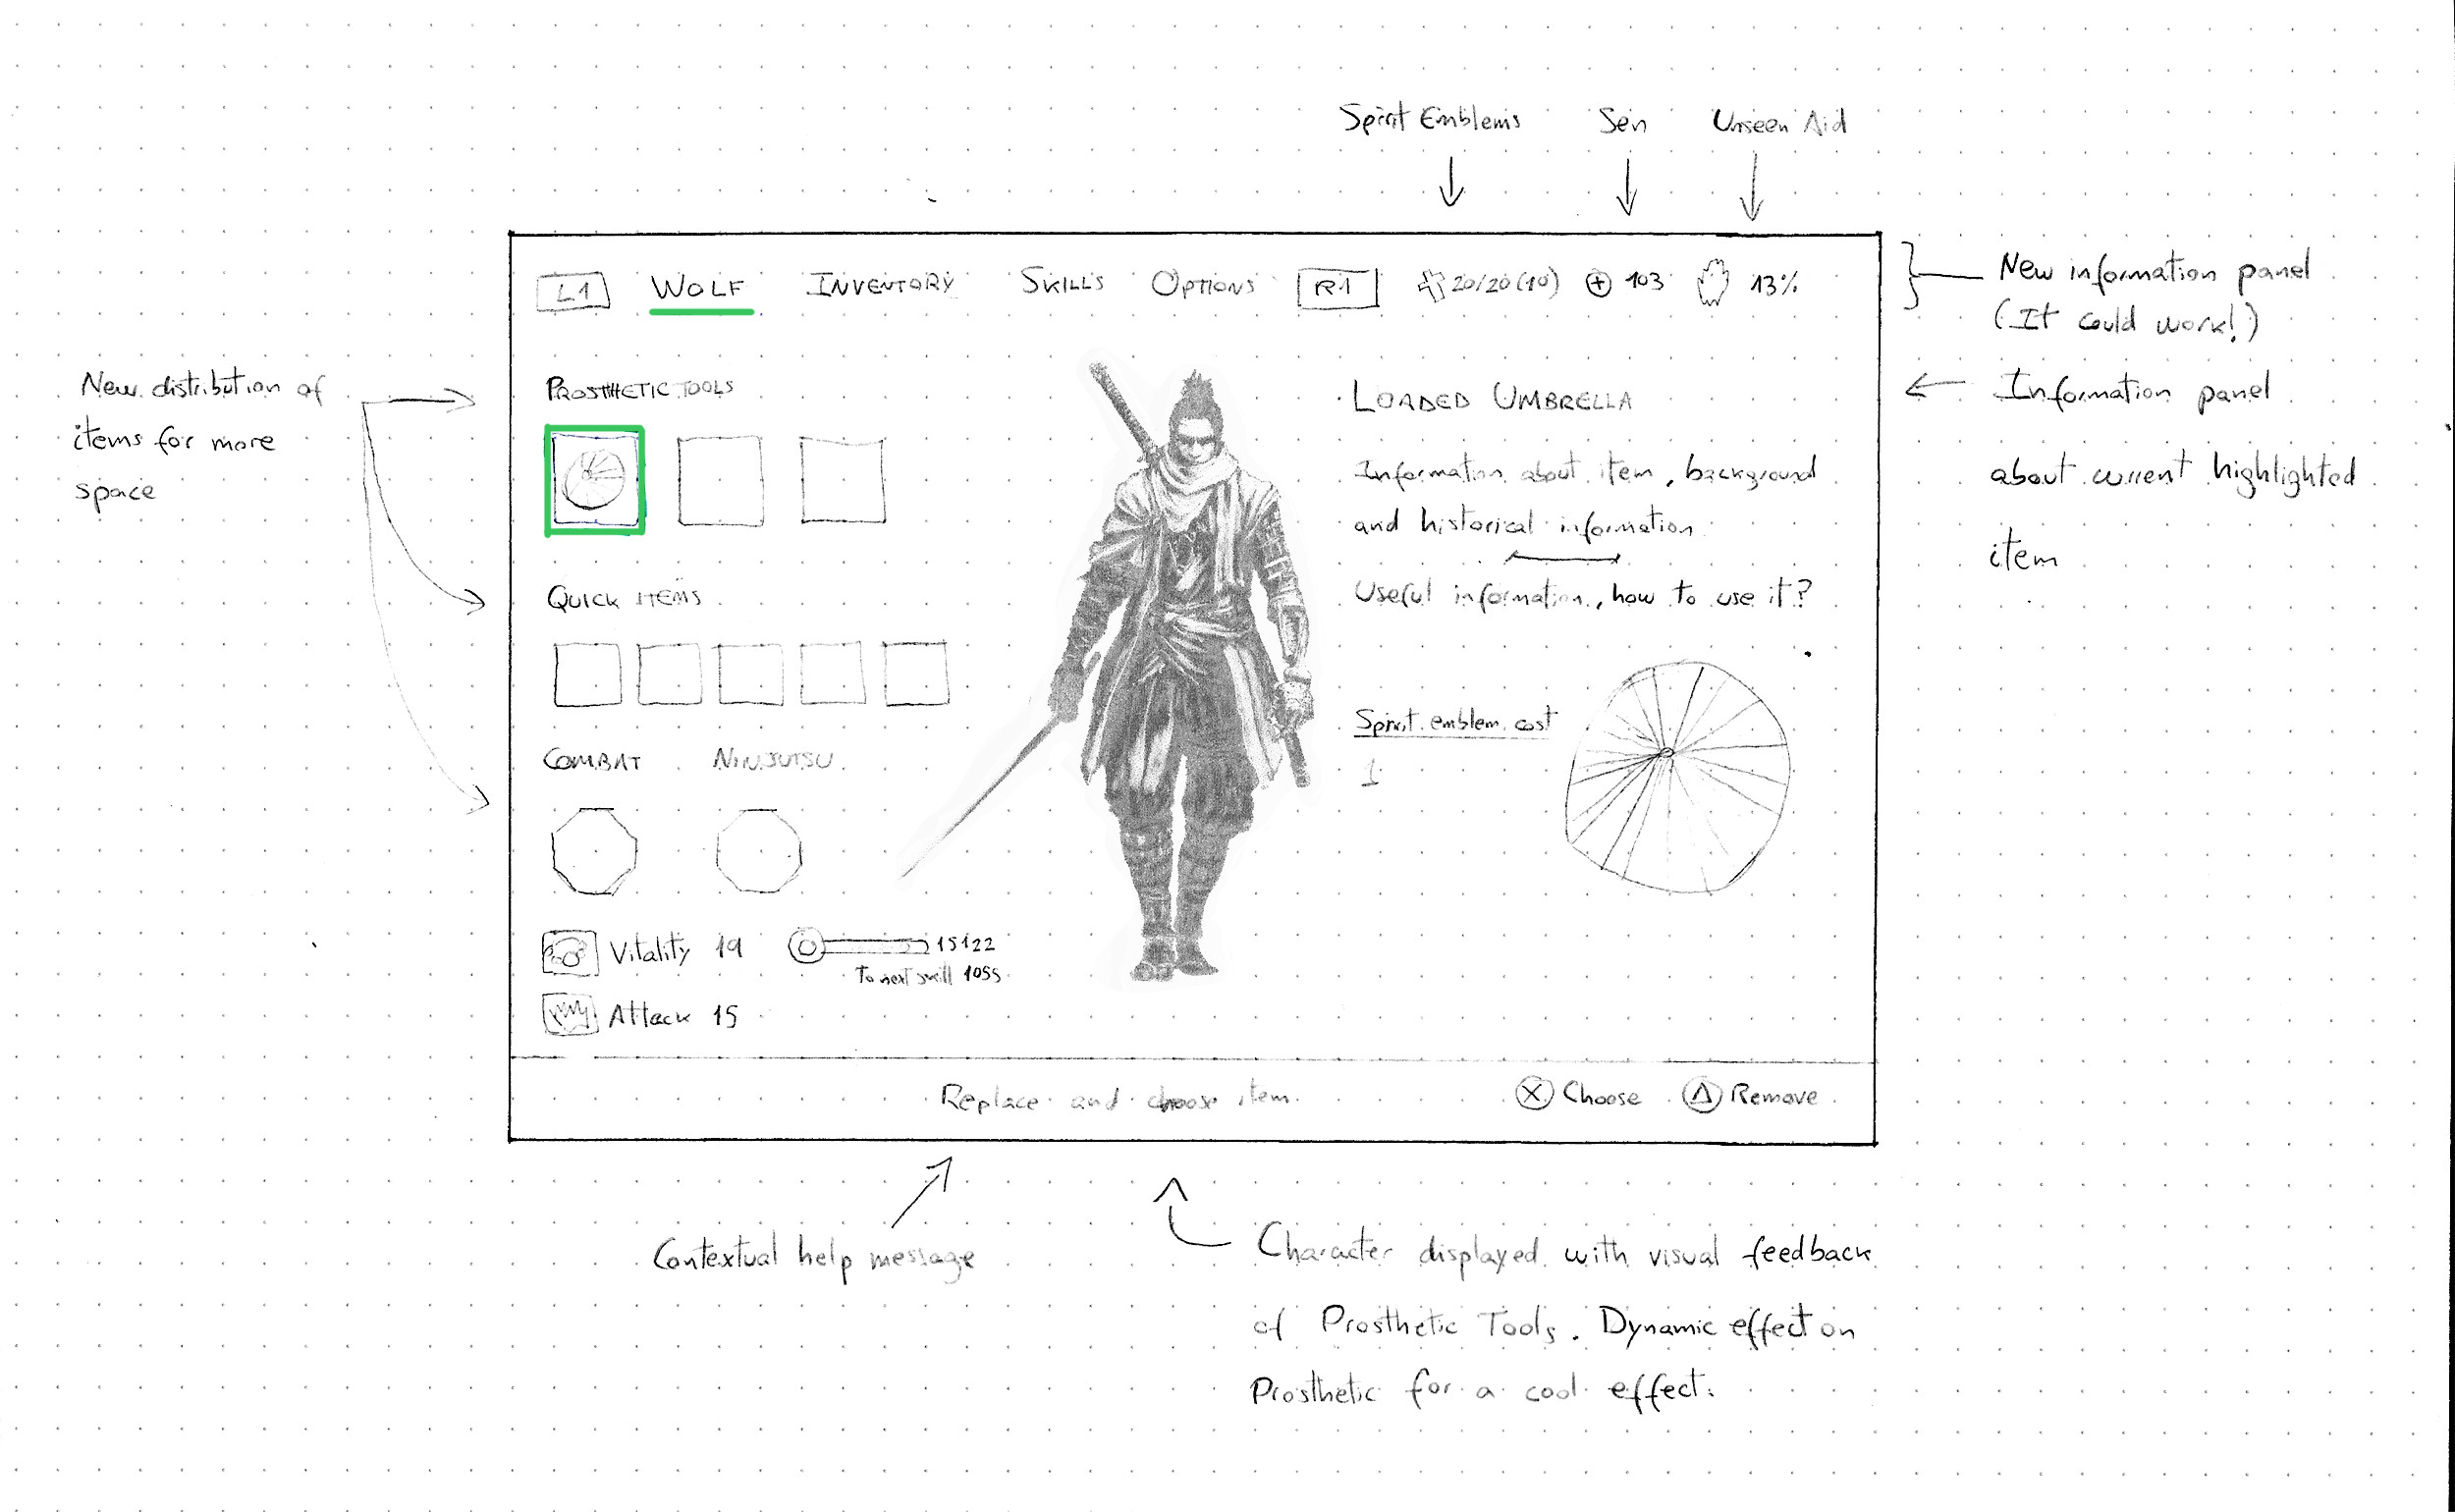 Spirit Emblems Sen Unseen Aid
L1 WOLF INVENTORY SKILLS OPTIONS R1 20/20(10) 103 13%
New information panel
(It could work!)
New distribution of
items for more
space
PROSTHETIC TOOLS
LOADED UMBRELLA
Information panel
about current highlighted
item
Information about item, background
and historical information
QUICK ITEMS
Useful information, how to use it?
Spirit emblem cost
1
COMBAT NINJUTSU
Vitality 19 15122
To next skill 1055
Attack 15
Replace and choose item. X Choose Δ Remove
Contextual help message
Character displayed with visual feedback
of Prosthetic Tools. Dynamic effect on
Prosthetic for a cool effect.